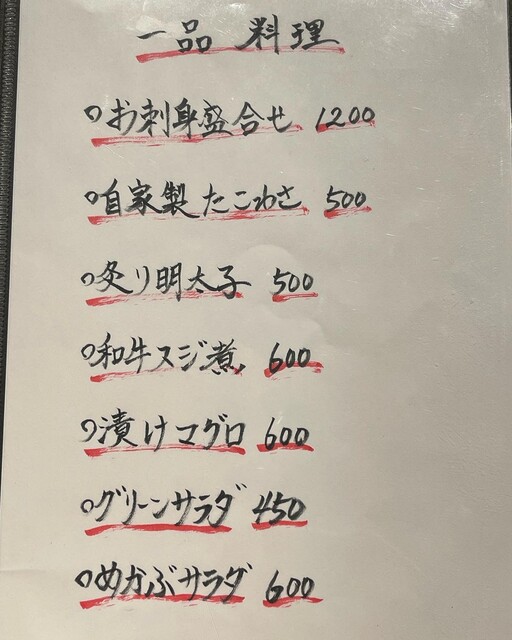 一品 料理
お刺身盛合せ 1200
自家製たこわさ 500
炙り明太子 500
和牛スジ煮 600
漬けマグロ 600
グリーンサラダ 450
めかぶサラダ 600